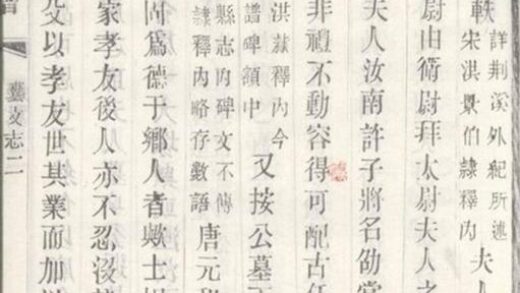 軼
詳荆溪外紀所述
宋洪景伯隸釋內
夫人
尉由衛尉拜太尉夫人之
夫人汝南許子將名劭當
非禮不動容得可配古任
洪隸釋內今
譜碑額中
又按公墓
縣志內碑文不傳
隸釋內略存數語
唐元和
爲德于鄉人者歟士
家孝友後人亦不忍沒
以孝友世其業而加
藝文志二